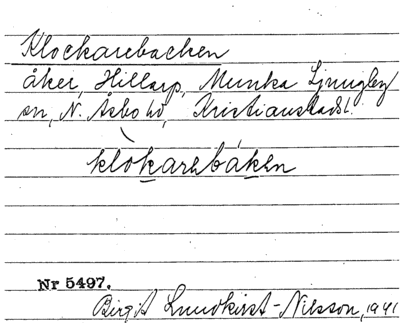 Klockarebacken
åker, Hillarp, Munka Ljungby
sn, N. Åsbo hd, Kristianstads l.
klòkarebáken
Nr 5497.
Birgit Lundkvist-Nilsson, 1941